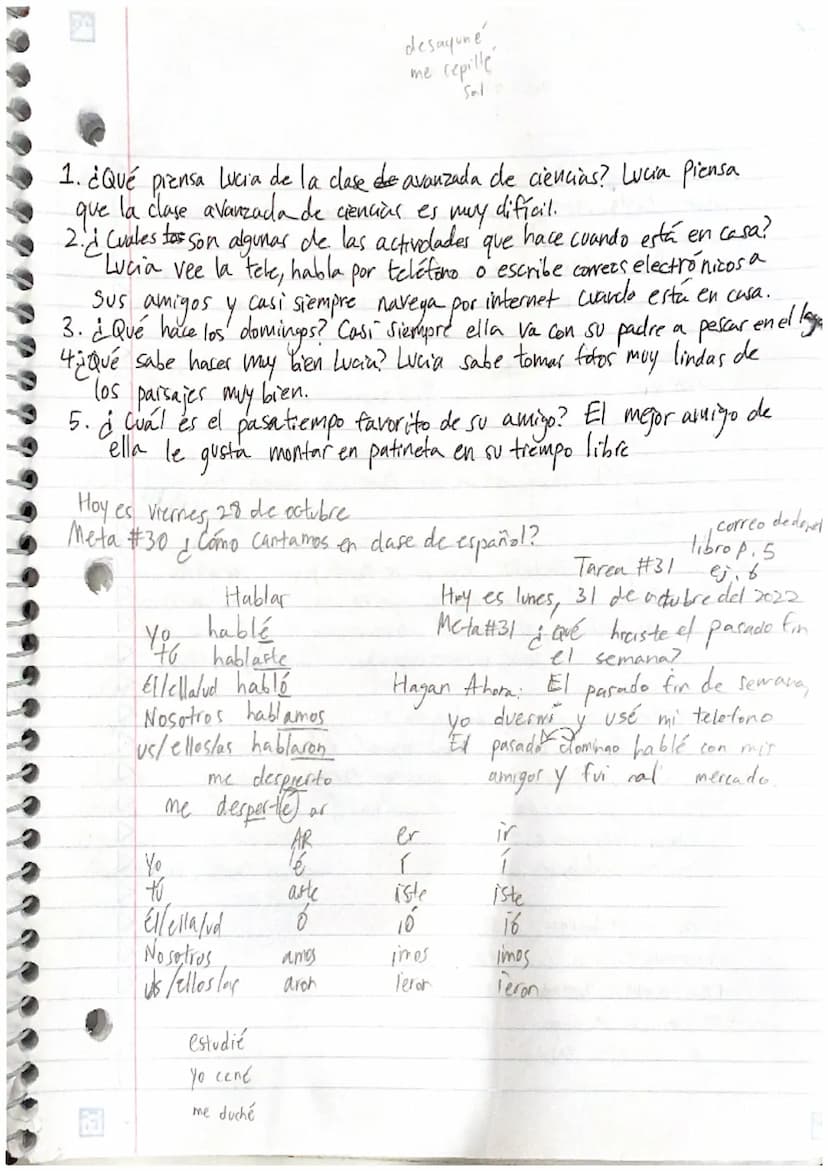 desayuné
me cepillé
Sal
1. ¿Qué piensa Lucia de la clase de avanzada de ciencias? Lucia Piensa
que la clase avanzada de ciencias es muy difícil.
2. ¿Cuales son algunas de las actividades que hace cuando está en casa?
Lucia vee la tele, habla por teléfono o escribe correos electrónicos a
sus amigos y casi siempre navega por internet cuando está en casa.
3. ¿Qué hace los domingos? Casi siempre ella va con su padre a pescar en el lago
4. ¿Qué sabe hacer muy bien Lucia? Lucia sabe tomar fotos muy lindas de
los paisajes muy bien.
5. ¿Cuál es el pasatiempo favorito de su amigo? El mejor amigo de
ella le gusta montar en patineta en su tiempo libre
Hoy es viernes, 28 de octubre
Meta #30 ¿Cómo cantamos en clase de español?
correo de
libro p. 5
Tarea #31 ej. 6
Hablar
Yo hablé
tú hablaste
Él/ella/ud habló
Nosotros hablamos
us/ellos/as hablaron
me despierto
me desperté ar
Hoy es lunes, 31 de octubre del 2022
Meta #31 ¿Qué hiciste el pasado fin
el semana?
Hagan Ahora: El pasado fin de semana,
yo duermí y usé mi telefono
El pasado domingo hablé con mis
amigos y fui al mercado.
AR er ir
Yo é í í
tú aste iste iste
Él/ella/ud ó ió ió
Nosotros amos imos imos
us/ellos/as aron ieron ieron
estudié
Yo cené
me duché